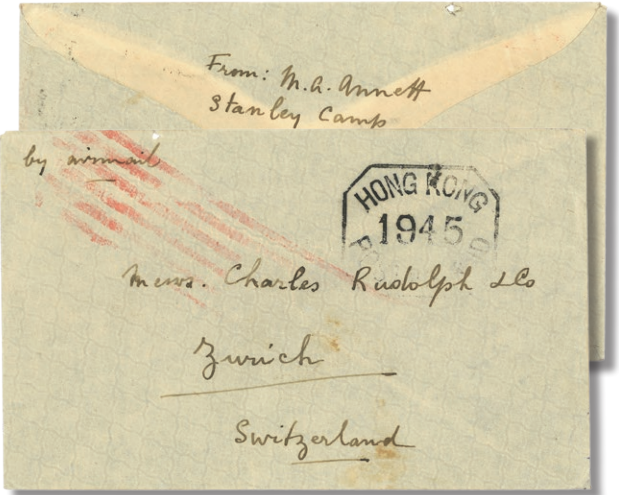 From: M. A. Annett
Stanley Camp
by airmail
HONG KONG
1945
Messrs. Charles Rudolph & Co
Zurich
Switzerland